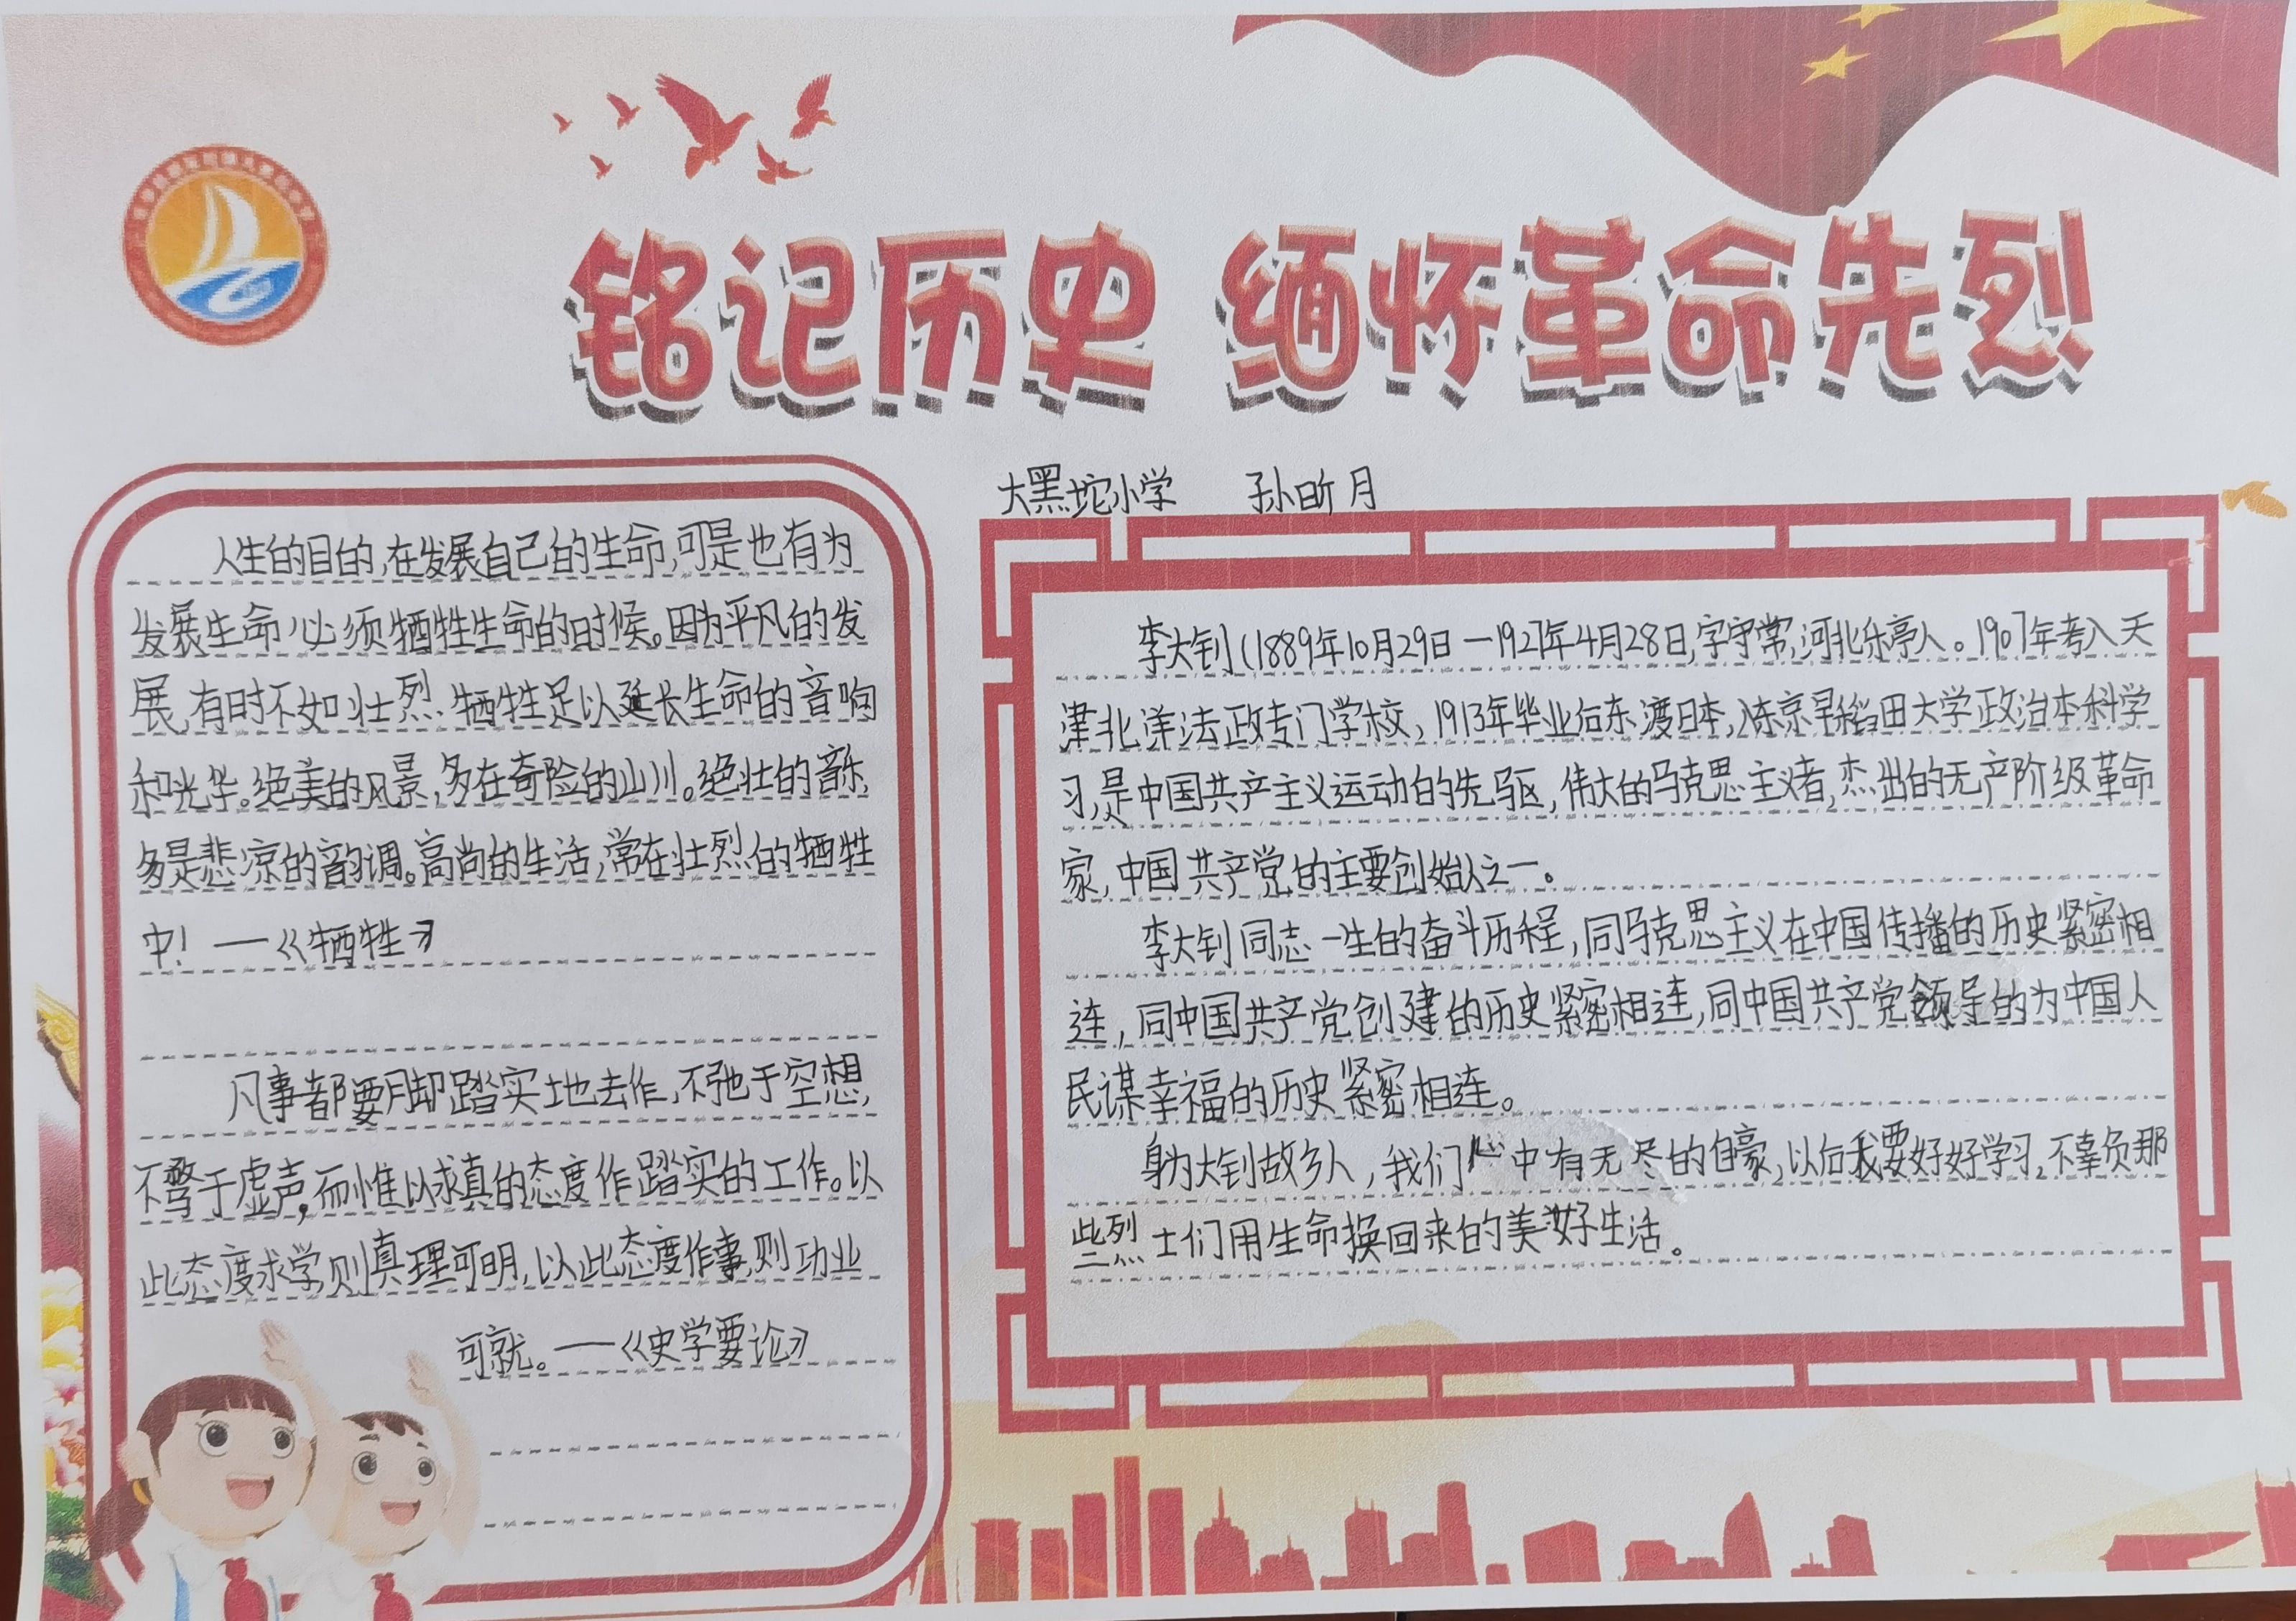 铭记历史 缅怀革命先烈
大黑坨小学 孙昕月
人生的目的,在发展自己的生命,可是也有为
发展生命必须牺牲生命的时候。因为平凡的发
展,有时不如壮烈牺牲足以延长生命的音响
和光华。绝美的风景,多在奇险的山川。绝壮的音乐,
多是悲凉的韵调。高尚的生活,常在壮烈的牺牲
中!——《牺牲》
凡事都要脚踏实地去作,不弛于空想,
不骛于虚声,而惟以求真的态度作踏实的工作。以
此态度求学,则真理可明,以此态度作事,则功业
可就。——《史学要论》
李大钊(1889年10月29日—1927年4月28日,字守常,河北乐亭人。1907年考入天
津北洋法政专门学校,1913年毕业后东渡日本,入东京早稻田大学政治本科学
习,是中国共产主义运动的先驱,伟大的马克思主义者,杰出的无产阶级革命
家,中国共产党的主要创始人之一。
李大钊同志一生的奋斗历程,同马克思主义在中国传播的历史紧密相
连,同中国共产党创建的历史紧密相连,同中国共产党领导的为中国人
民谋幸福的历史紧密相连。
身为大钊故乡人,我们心中有无尽的自豪,以后我要好好学习,不辜负那
些烈士们用生命换回来的美好生活。